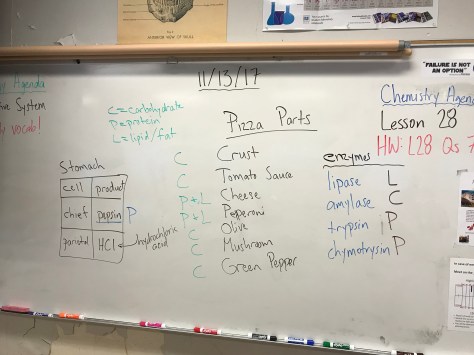 ANTERIOR VIEW OF SKULL
"FAILURE IS NOT
AN OPTION"
11/13/17
Agenda
System
vocab!
C = carbohydrate
P = protein
L = lipid/fat
Pizza Parts
C Crust
C Tomato Sauce
P + L Cheese
P + L Peperoni
C Olive
C Mushroom
C Green Pepper
Stomach
cell product
chief pepsin P
parietal HCl hydrochloric
acid
enzymes
lipase L
amylase C
trypsin P
chymotrysin P
Chemistry Agen
Lesson 28
HW: L28 Qs